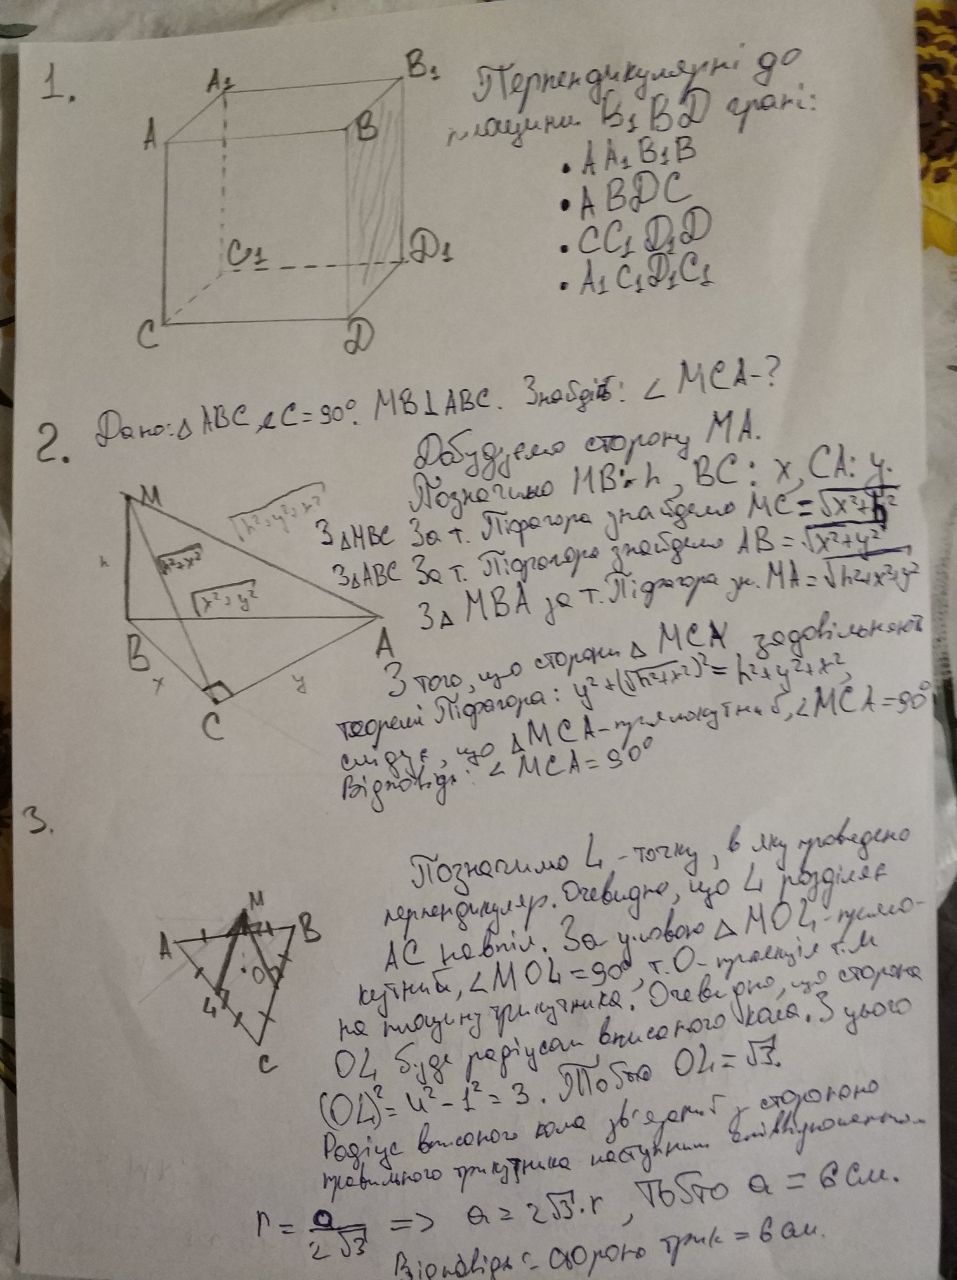 1.
A₁
B₁
A
B
C₁
D₁
C
D
Перпендикулярні до
площини B₁BD грані:
• AA₁B₁B
• ABDC
• CC₁D₁D
• A₁C₁D₁C₁
2. Дано: △ABC, ∠C=90°. MB⊥ABC. Знайдіть: ∠MCA-?
Добудуємо сторону MA.
Позначимо MB: h, BC: x, CA: y.
З △MBC За т. Піфагора знайдемо MC = √x²+h²
З △ABC За т. Піфагора знайдемо AB = √x²+y²
З △ MBA за т. Піфагора зн. MA = √h²+x²+y²
З того, що сторони △ MCA задовільняють
теоремі Піфагора: y²+(√h²+x²)² = h²+y²+x²,
слідує, що △MCA-прямокутний, ∠MCA=90°
Відповідь: ∠MCA=90°
M
√h²+y²+x²
h
h²+x²
√x²+y²
B
A
x
y
C
3.
M
A
B
O
L
C
Позначимо L - точку, в яку проведено
перпендикуляр. Очевидно, що L розділяє
AC навпіл. За умовою △MOL-прямо-
кутний, ∠MOL=90°, т.O-проекція т.M
на площину трикутника. Очевидно, що сторона
OL буде радіусом вписаного кола. З цього
(OL)² = - 1² = 3. Тобто OL = √3.
Радіус вписаного кола зв'язаний з стороною
правильного трикутника наступним
r = a/2√3 => a = 2√3·r, Тобто a = 6 см.
Відповідь: сторона трик = 6 см.